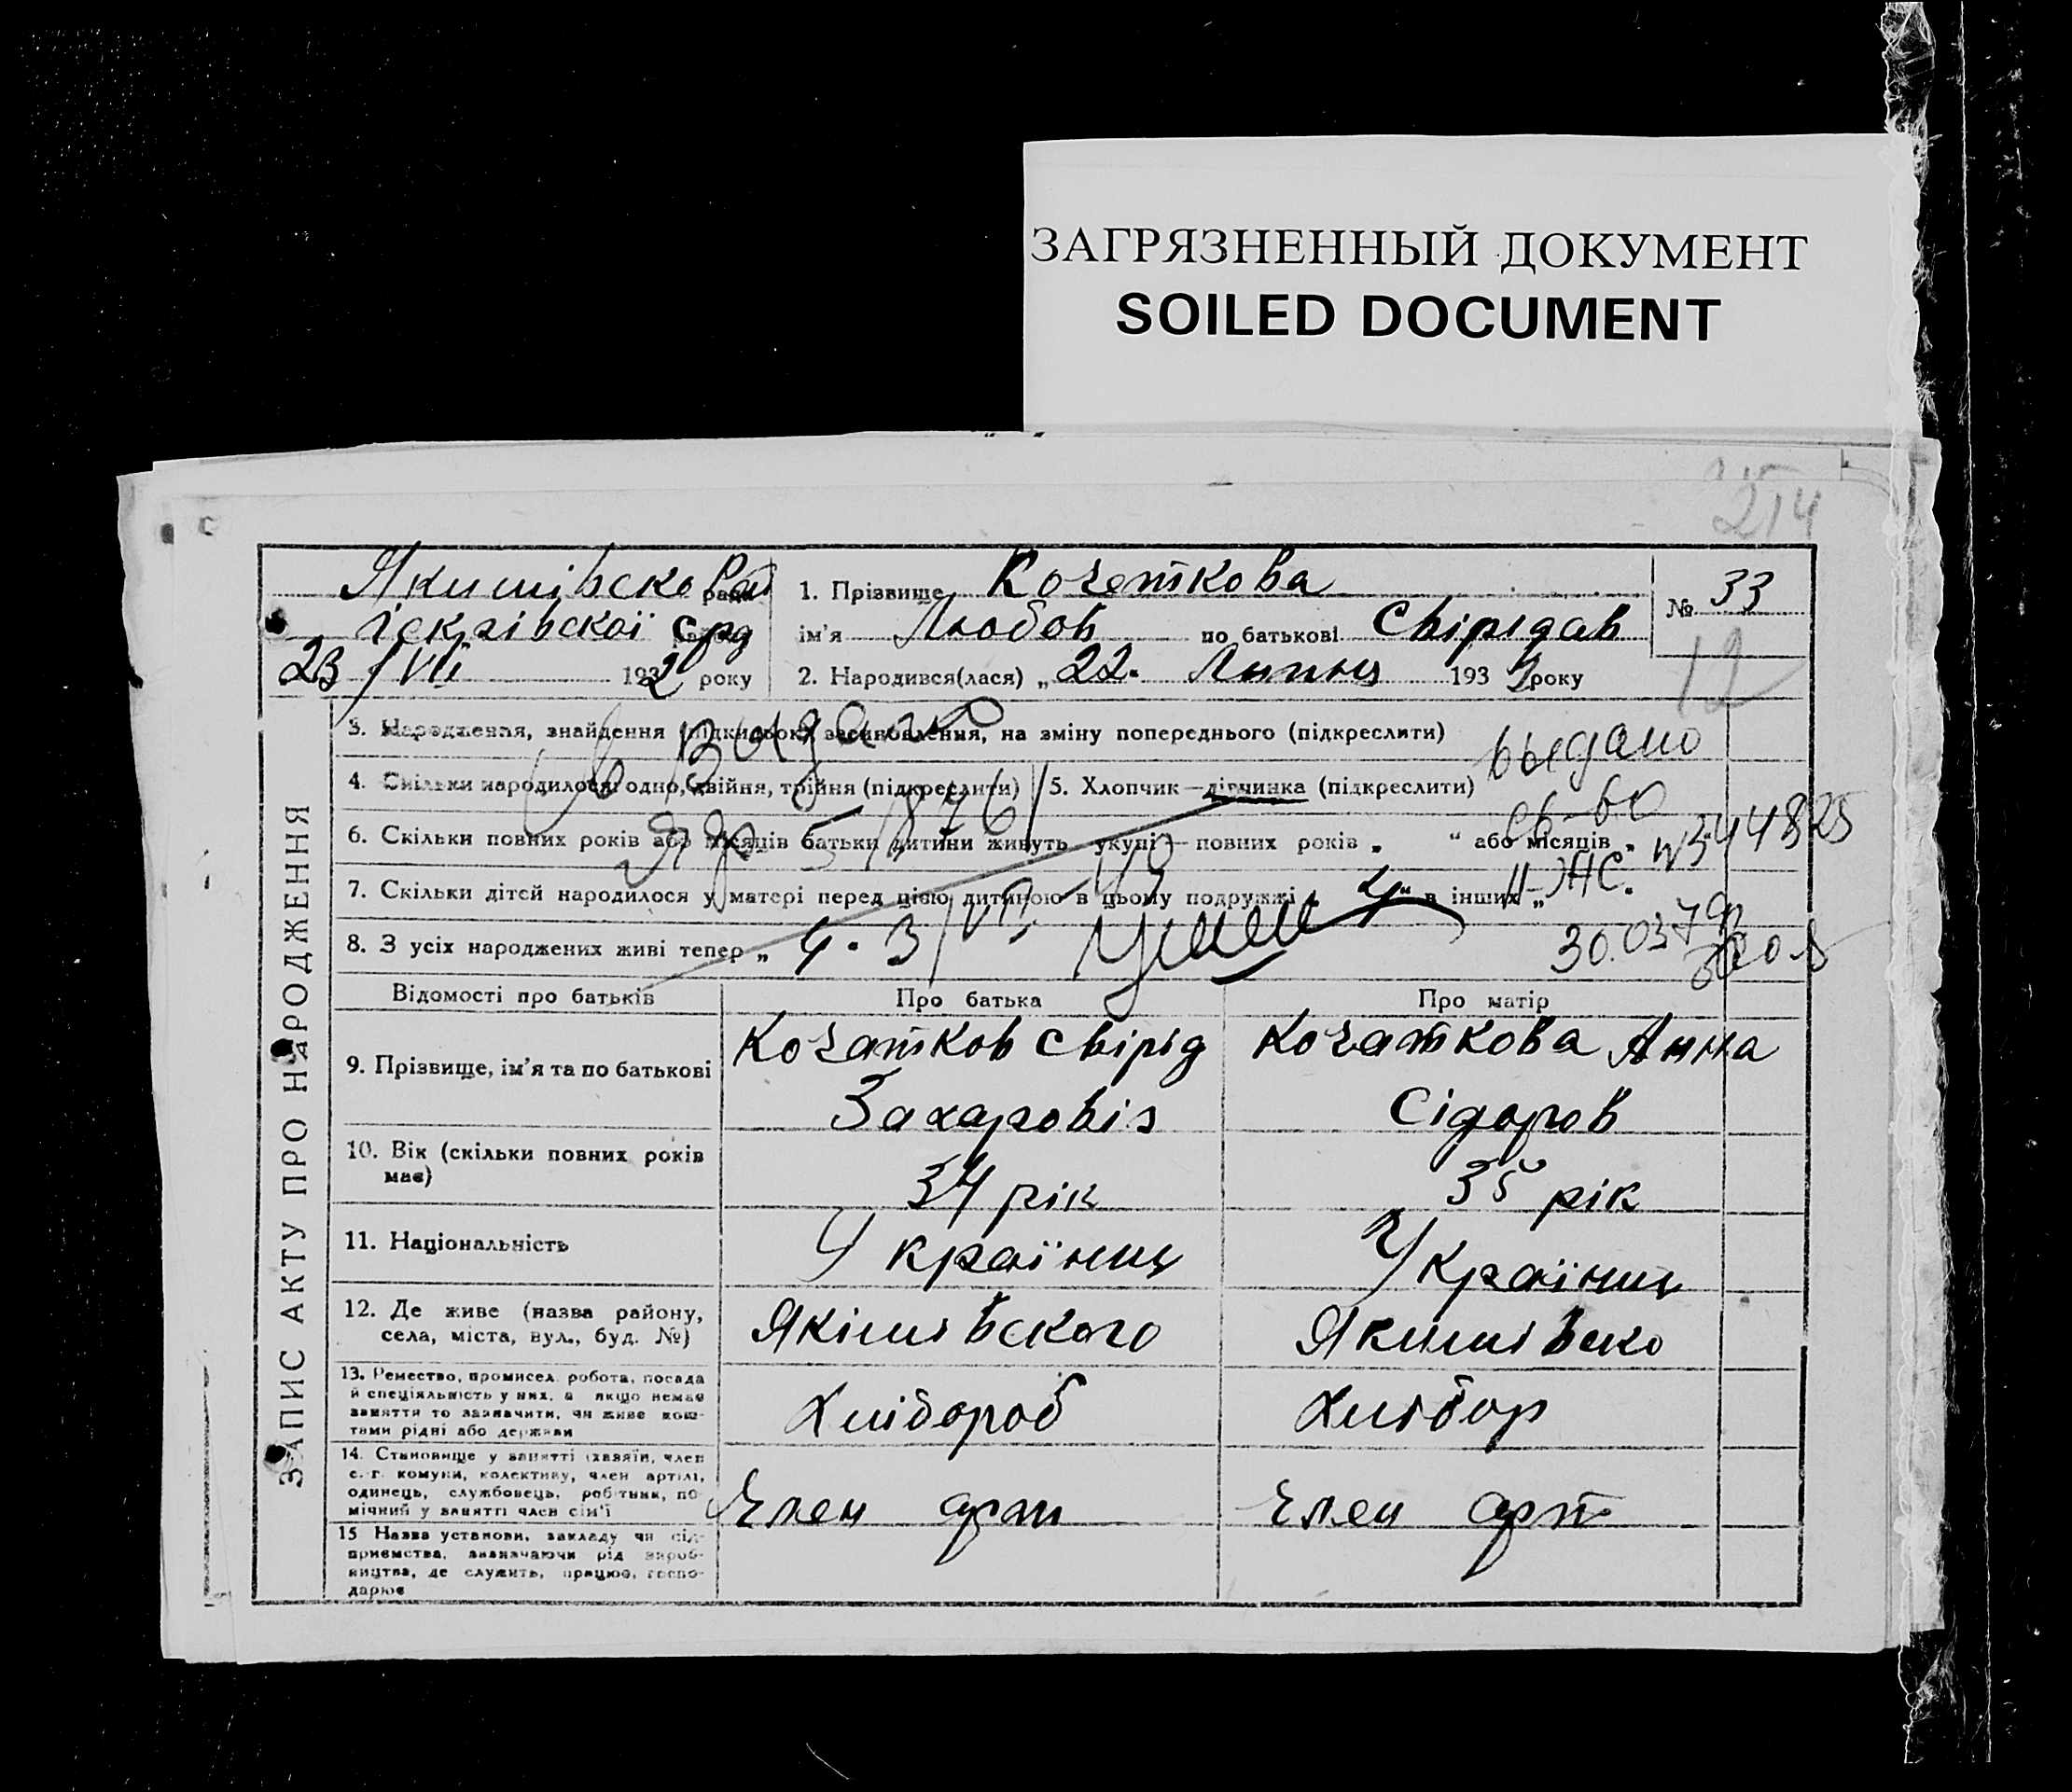 ЗАГРЯЗНЕННЫЙ ДОКУМЕНТ
SOILED DOCUMENT
214
ЗАПИС АКТУ ПРО НАРОДЖЕННЯ
23/VII 1932 року
1. Прізвище Кочеткова
№ 33
ім'я Любов по батькові Свірідав
2. Народився(лася) „22. Липня 1932 року
12
3. Народження, знайдення (підкидьок) засиновлення, на зміну попереднього (підкреслити)
выдано
4. Скільки народилося: одно, двійня, трійня (підкреслити)
5. Хлопчик—дівчинка (підкреслити)
6. Скільки повних років або місяців батьки дитини живуть укупі — повних років „ “ або місяців „
св-во
II-ЖС. №344825
7. Скільки дітей народилося у матері перед цією дитиною в цьому подружжі „4“ в інших „
8. З усіх народжених живі тепер „ 4. 3
30.03.79
Відомості про батьків
Про батька
Про матір
9. Прізвище, ім'я та по батькові
Кочатков Свірід
Захаровіч
Кочаткова Анна
Сідоров
10. Вік (скільки повних років має)
34 рік
35 рік
11. Національність
Українц
Українц
12. Де живе (назва району, села, міста, вул., буд. №)
Якімівского
Якимівско
13. Ремество, промисел, робота, посада й спеціяльність у них, а якщо немає заняття то зазначити, чи живе коштами рідні або держави
Хлібороб
Хлібор
14. Становище у занятті (хазяїн, член с.-г. комуни, колективу, член артілі, одинець, службовець, робітник, помічний у занятті член сім'ї
Член арт
Член арт
15 Назва установи, закладу чи підприємства, визначаючи рід виробництва, де служить, працює, господарює